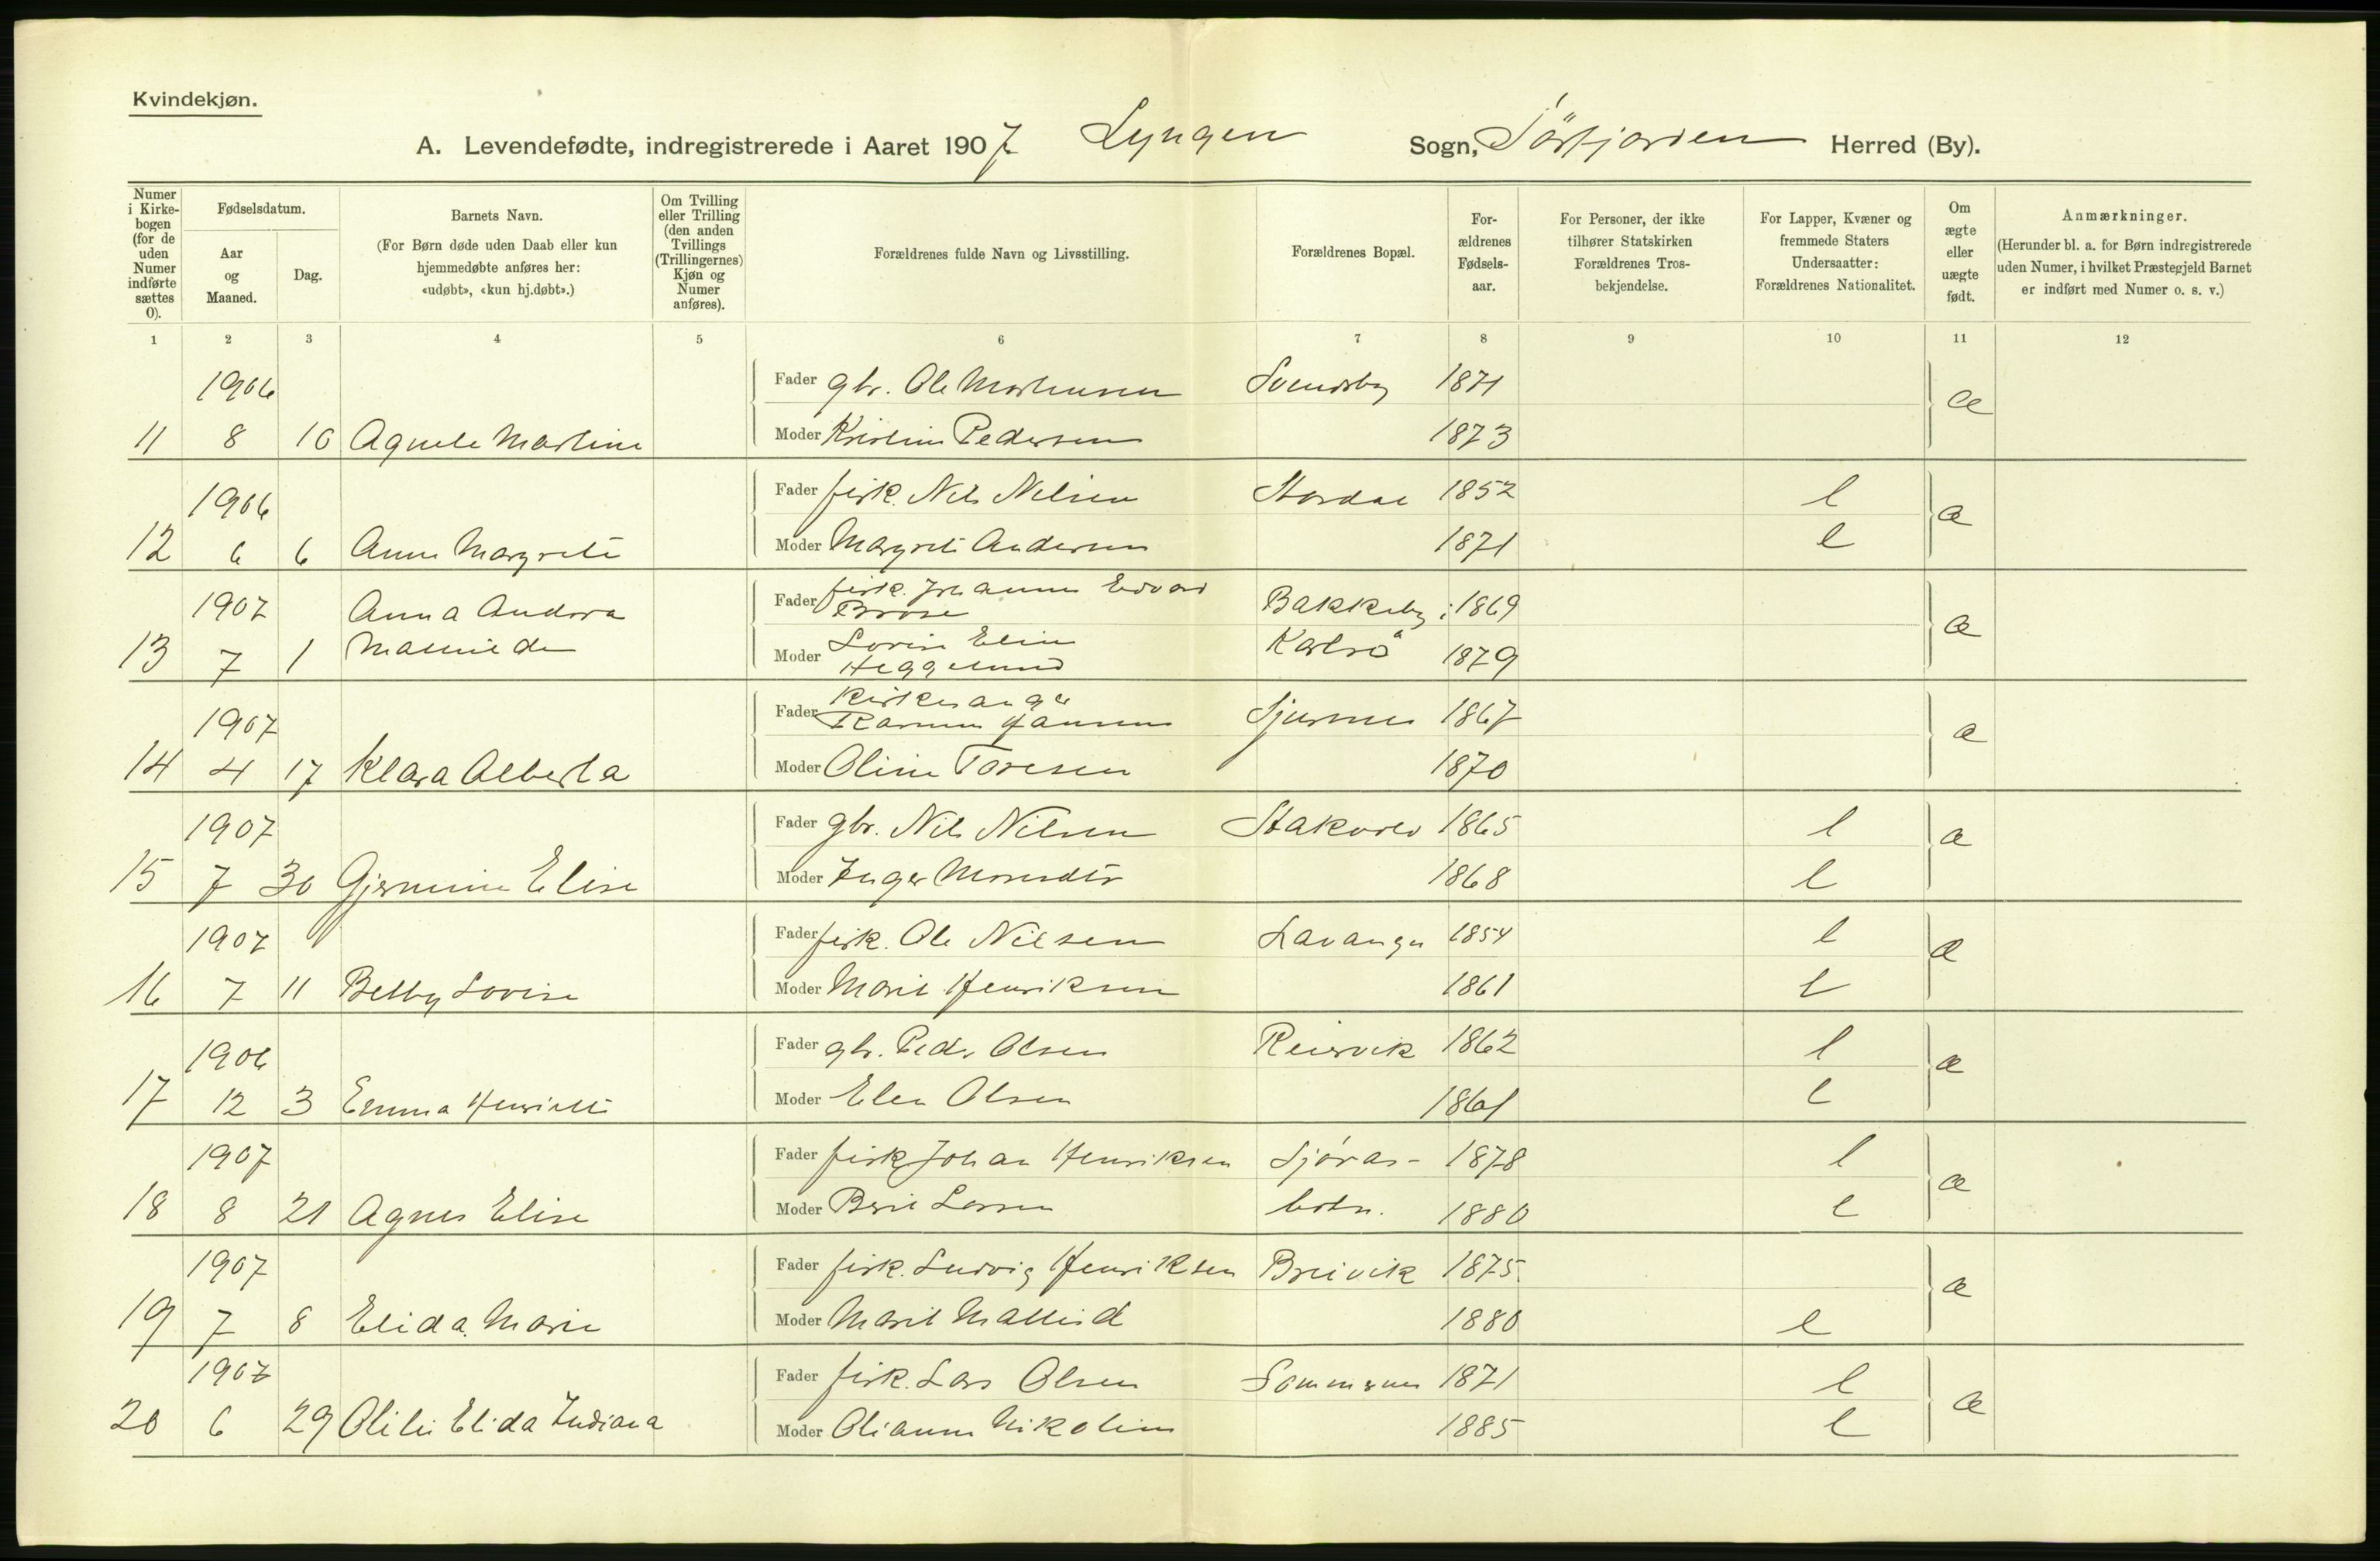 Kvindekjøn.
A. Levendefødte, indregistrerede i Aaret 1907 Lyngen Sogn, Sörfjorden Herred (By).
Numer
i Kirke-
bogen
(for de
uden
Numer
indførte
sættes
0).
Fødselsdatum.
Aar
og
Maaned.
Dag.
Barnets Navn.
(For Børn døde uden Daab eller kun
hjemmedøbte anføres her:
«udøbt», «kun hj.døbt».)
Om Tvilling
eller Trilling
(den anden
Tvillings
(Trillingernes)
Kjøn og
Numer
anføres).
Forældrenes fulde Navn og Livsstilling.
Forældrenes Bopæl.
For-
ældrenes
Fødsels-
aar.
For Personer, der ikke
tilhører Statskirken
Forældrenes Tros-
bekjendelse.
For Lapper, Kvæner og
fremmede Staters
Undersaatter:
Forældrenes Nationalitet.
Om
ægte
eller
uægte
født.
Anmærkninger.
(Herunder bl. a. for Børn indregistrerede
uden Numer, i hvilket Præstegjeld Barnet
er indført med Numer o. s. v.)
1 2 3 4 5 6 7 8 9 10 11 12
1906 Fader gbr. Ole Mortensen Svendsby 1871 æ
11 8 10 Agnete Martine Moder Kristine Pedersen 1873
1906 Fader fisk. Nils Nilsen Stordal 1852 l æ
12 6 6 Anne Margrete Moder Margrete Andersen 1871 l
1907 Anna Andora Fader fisk. Johannes Edvard
Brose Bakkeby i 1869 æ
13 7 1 Mathilde Moder Lovise Eline
Heggelund Karlsö 1879
1907 Fader Kirkesanger
Rasmus Hansen 1867 æ
14 4 17 Klara Alberta Moder Oline Toresen 1870
1907 Fader gbr. Nils Nilsen Stakvolv 1865 l æ
15 7 30 Gjermine Elise Moder Inger 1868 l
1907 Fader fisk. Ole Nilsen Lavangen 1854 l æ
16 7 11 Betty Lovise Moder Marit Henriksen 1861 l
1906 Fader gbr. Peder Olsen Reiervik 1862 l æ
17 12 3 Emma Henriette Moder Elen Olsen 1861 l
1907 Fader fisk Johan Henriksen Sjöras- 1878 l æ
18 8 21 Agnes Elise Moder Berit Larsen botn. 1880 l
1907 Fader fisk. Ludvig Henriksen Breivik 1875 æ
19 7 8 Elida Marie Moder Marit Mallis d 1880 l
1907 Fader fisk. Lars Olsen 1871 l æ
20 6 29 Olile Elida Indiana Moder Olianne Nikoline 1885 l